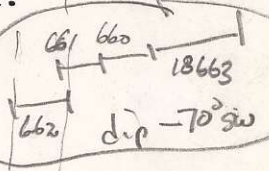 661 660 18663
662 dip -70° SW